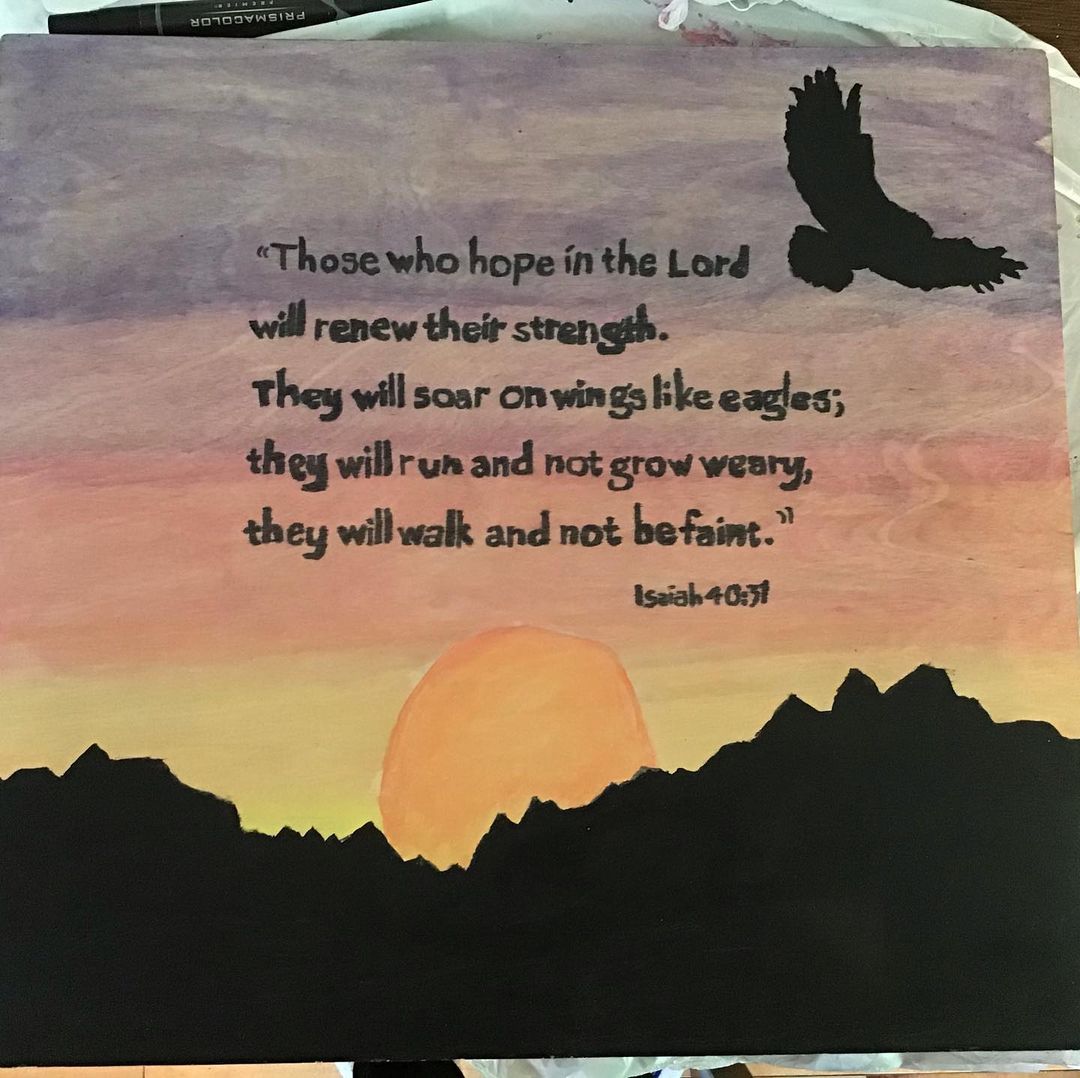 PRISMACOLOR
PREMIER
“Those who hope in the Lord
will renew their strength.
They will soar on wings like eagles;
they will run and not grow weary,
they will walk and not be faint.”
Isaiah 40:31